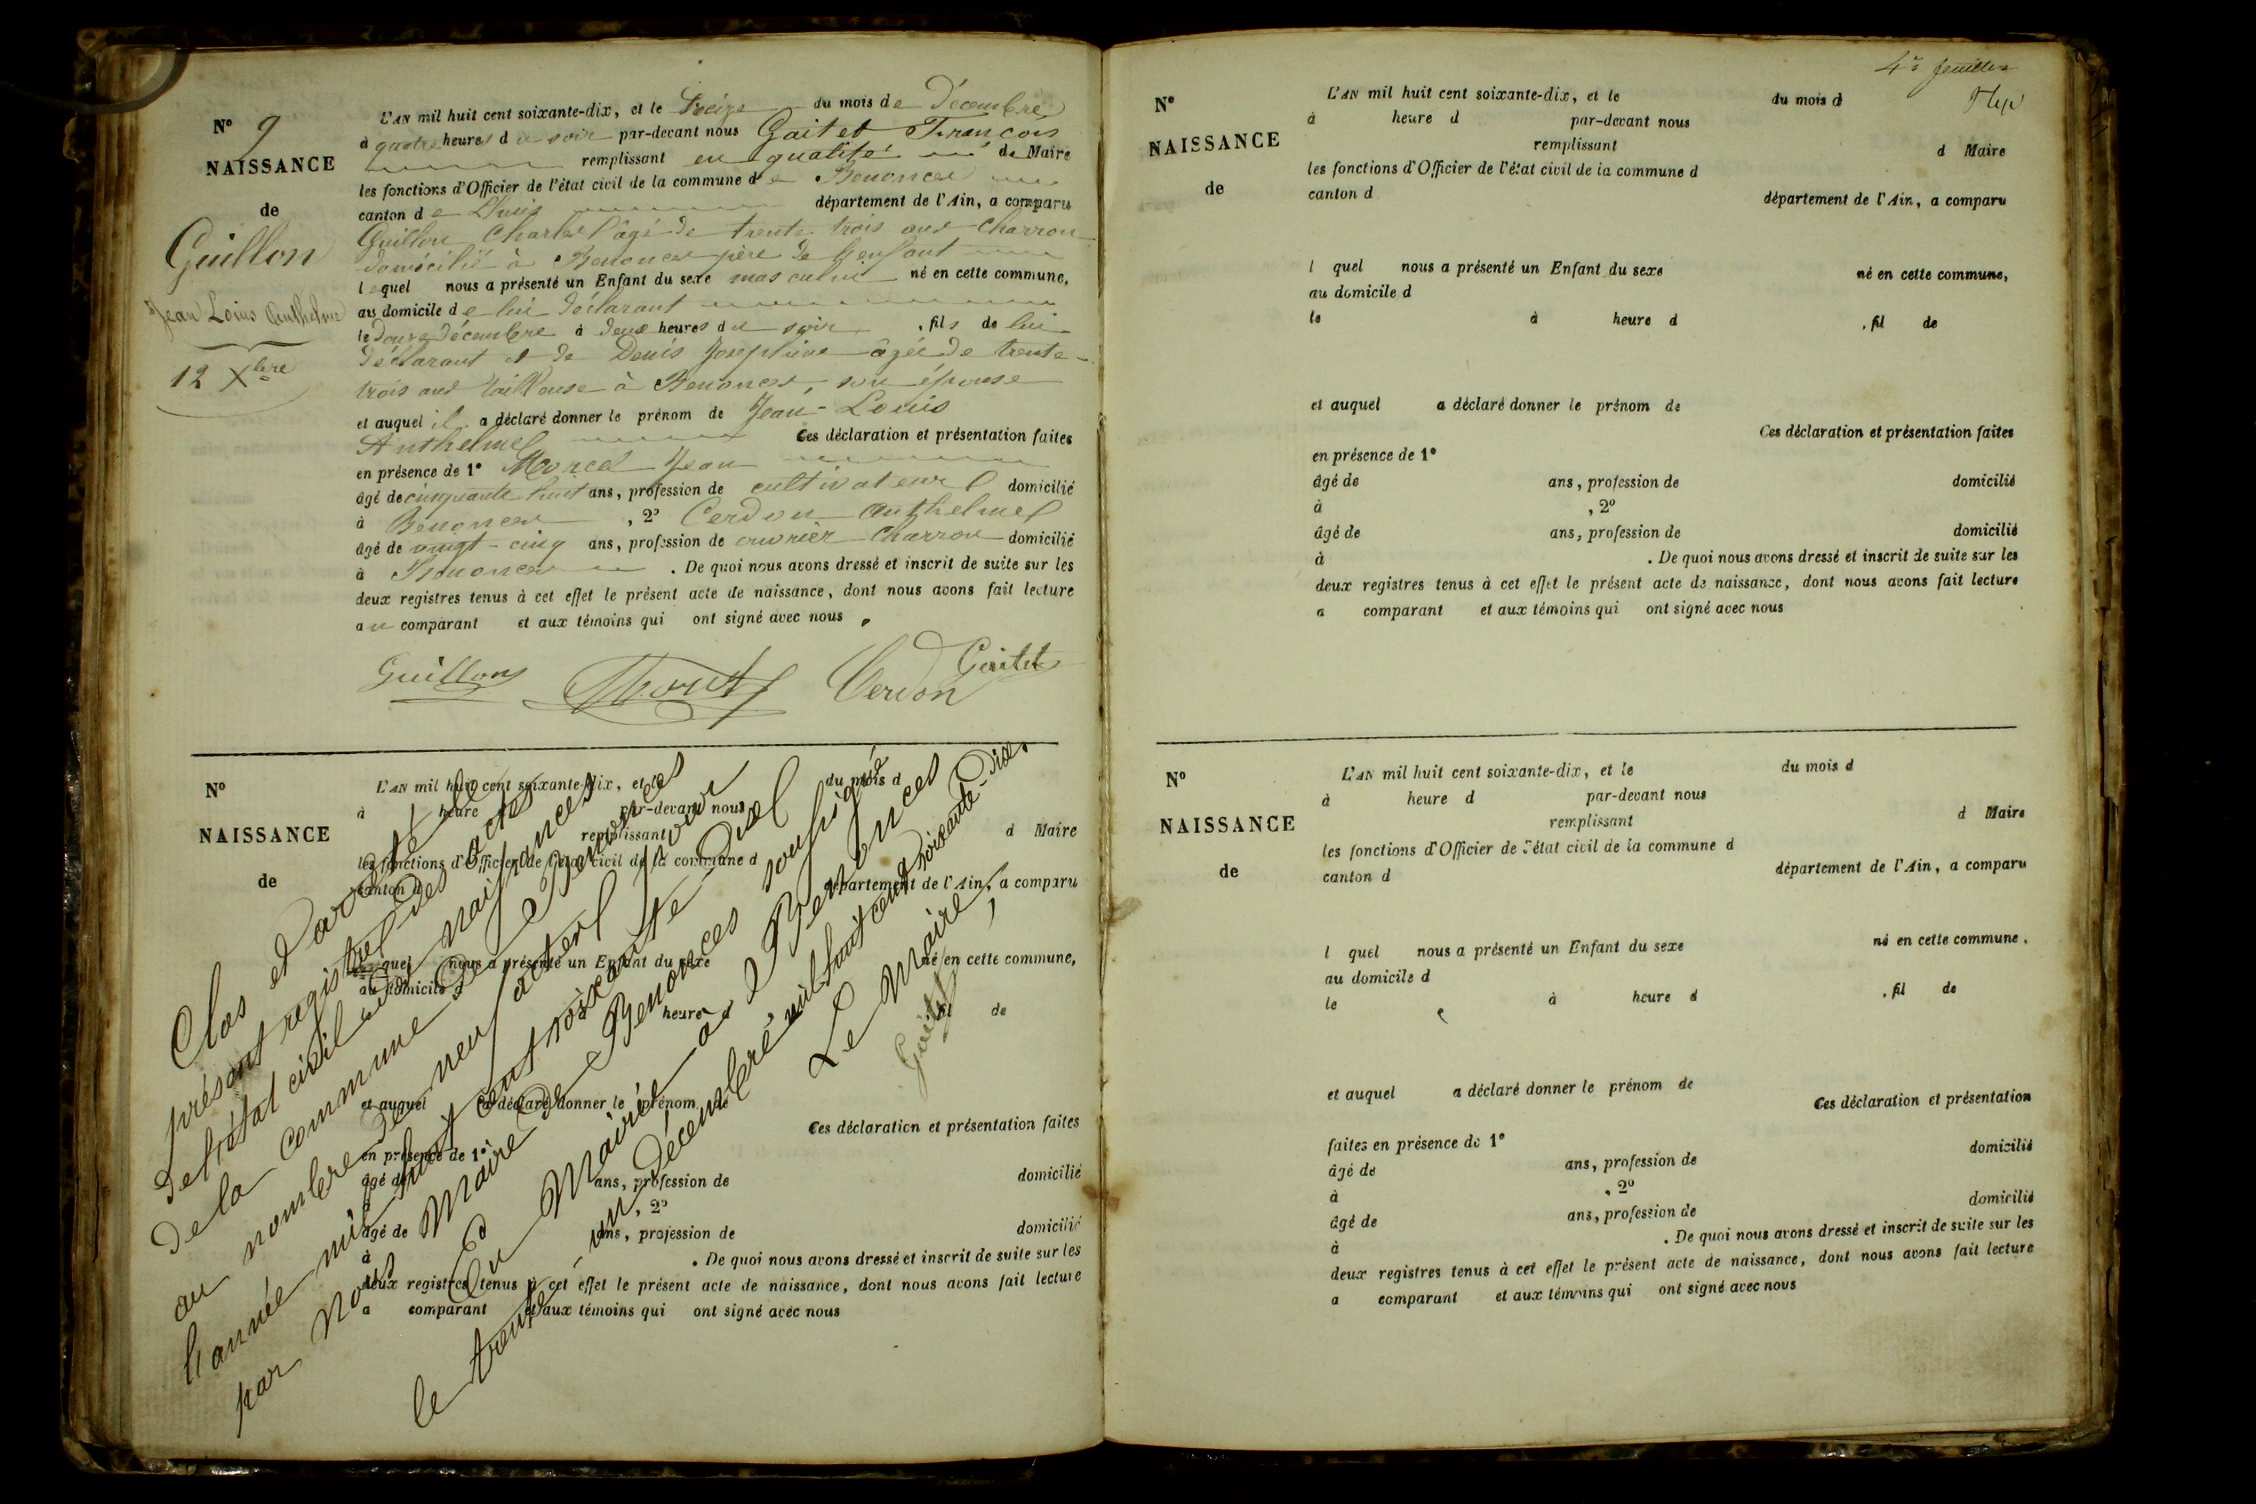 N° 9
NAISSANCE
de
Guillon
Jean Louis Anthelme
12 Xbre
L'AN mil huit cent soixante-dix, et le treize du mois de Décembre
à quatre heures du soir par-devant nous Gaitet François
remplissant en qualité de Maire
les fonctions d'Officier de l'état civil de la commune de Benonces
canton de Lhuis département de l'Ain, a comparu
Guillon Charles âgé de trente trois ans charron
domicilié à Benonces père de l'enfant
lequel nous a présenté un Enfant du sexe masculin né en cette commune,
au domicile de lui déclarant
le douze décembre à deux heures du soir, fils de lui
déclarant et de Denis Joséphine âgée de trente-
trois ans tailleuse à Benonces, son épouse
et auquel il a déclaré donner le prénom de Jean-Louis
Anthelme Ces déclaration et présentation faites
en présence de 1° Jean
âgé de cinquante huit ans, profession de cultivateur domicilié
à Benonces, 2° Cerdon Anthelme
âgé de vingt-cinq ans, profession de ouvrier charron domicilié
à Benonces. De quoi nous avons dressé et inscrit de suite sur les
deux registres tenus à cet effet le présent acte de naissance, dont nous avons fait lecture
au comparant et aux témoins qui ont signé avec nous.
Guillon Cerdon Gaitet
N°
NAISSANCE
de
L'AN mil huit cent soixante-dix, et le du mois d
à heure par-devant nous
remplissant d Maire
les fonctions d'Officier de l'état civil de la commune d
canton d département de l'Ain, a comparu
l quel nous a présenté un Enfant du sexe né en cette commune,
au domicile d
heure d fil de
et auquel a déclaré donner le prénom de
Ces déclaration et présentation faites
en présence de 1°
âgé de ans, profession de domicilié
à , 2°
âgé de ans, profession de domicilié
à . De quoi nous avons dressé et inscrit de suite sur les
deux registres tenus à cet effet le présent acte de naissance, dont nous avons fait lecture
a comparant et aux témoins qui ont signé avec nous
Clos et arrêté le
présent registre des actes
de l'état civil des naissances
de la commune de Benonces
au nombre de neuf actes pour
l'année mil huit cent soixante-dix
par Nous Maire de Benonces soussigné
En Mairie à Benonces
le trente-un Décembre, mil huit cent soixante-dix.
Le Maire,
Gaitet
4e feuillet
N°
NAISSANCE
de
L'AN mil huit cent soixante-dix, et le du mois d
à heure d par-devant nous
remplissant d Maire
les fonctions d'Officier de l'état civil de la commune d
canton d département de l'Ain, a comparu
l quel nous a présenté un Enfant du sexe né en cette commune,
au domicile d
le à heure d , fil de
et auquel a déclaré donner le prénom de
Ces déclaration et présentation faites
en présence de 1°
âgé de ans, profession de domicilié
à , 2°
âgé de ans, profession de domicilié
à . De quoi nous avons dressé et inscrit de suite sur les
deux registres tenus à cet effet le présent acte de naissance, dont nous avons fait lecture
a comparant et aux témoins qui ont signé avec nous
N°
NAISSANCE
de
L'AN mil huit cent soixante-dix, et le du mois d
à heure d par-devant nous
remplissant d Maire
les fonctions d'Officier de l'état civil de la commune d
canton d département de l'Ain, a comparu
l quel nous a présenté un Enfant du sexe né en cette commune,
au domicile d
le à heure d , fil de
et auquel a déclaré donner le prénom de
Ces déclaration et présentation
faites en présence de 1° domicilié
âgé de ans, profession de
à , 2° domicilié
âgé de ans, profession de
à . De quoi nous avons dressé et inscrit de suite sur les
deux registres tenus à cet effet le présent acte de naissance, dont nous avons fait lecture
a comparant et aux témoins qui ont signé avec nous